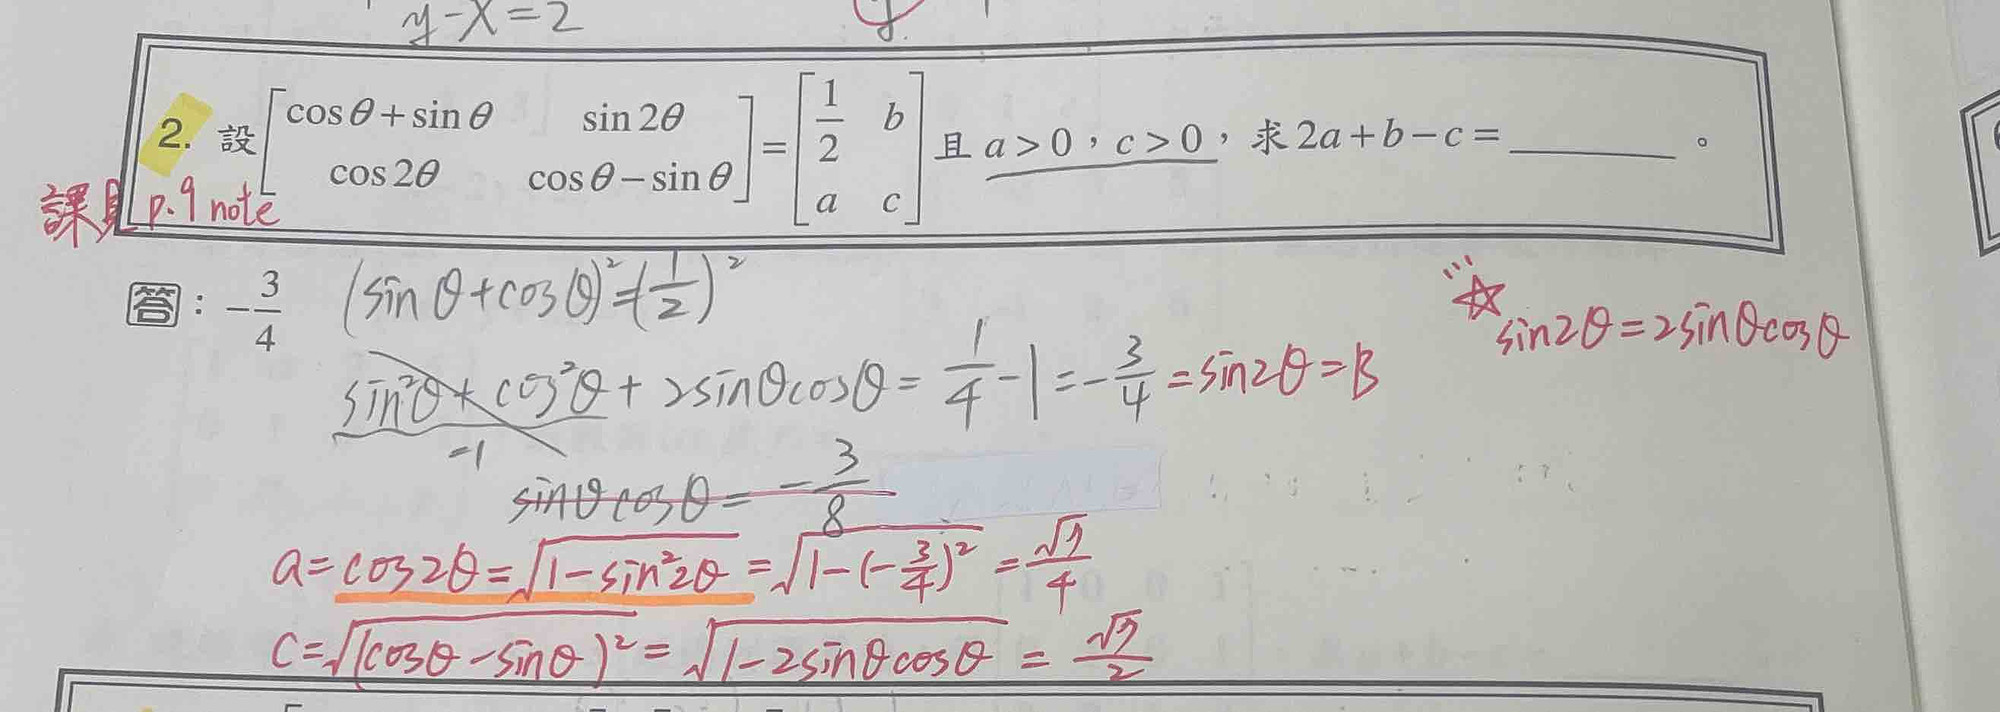 y-x=2
2. 設 [cosθ+sinθ sin2θ cos2θ cosθ−sinθ] = [1/2 b a c] 且 a>0，c>0，求 2a+b−c=________。
課見 p.9 note
答：−3/4
(sinθ+cosθ)²=(1/2)²
☆ sin2θ=2sinθcosθ
sin²θ+cos²θ+2sinθcosθ=1/4-1=-3/4=sin2θ=B
=1
sinθcosθ=-3/8
a=cos2θ=√(1-sin²2θ)=√(1-(-3/4)²)=√7/4
c=√(cosθ-sinθ)²=√(1-2sinθcosθ)=√7/2